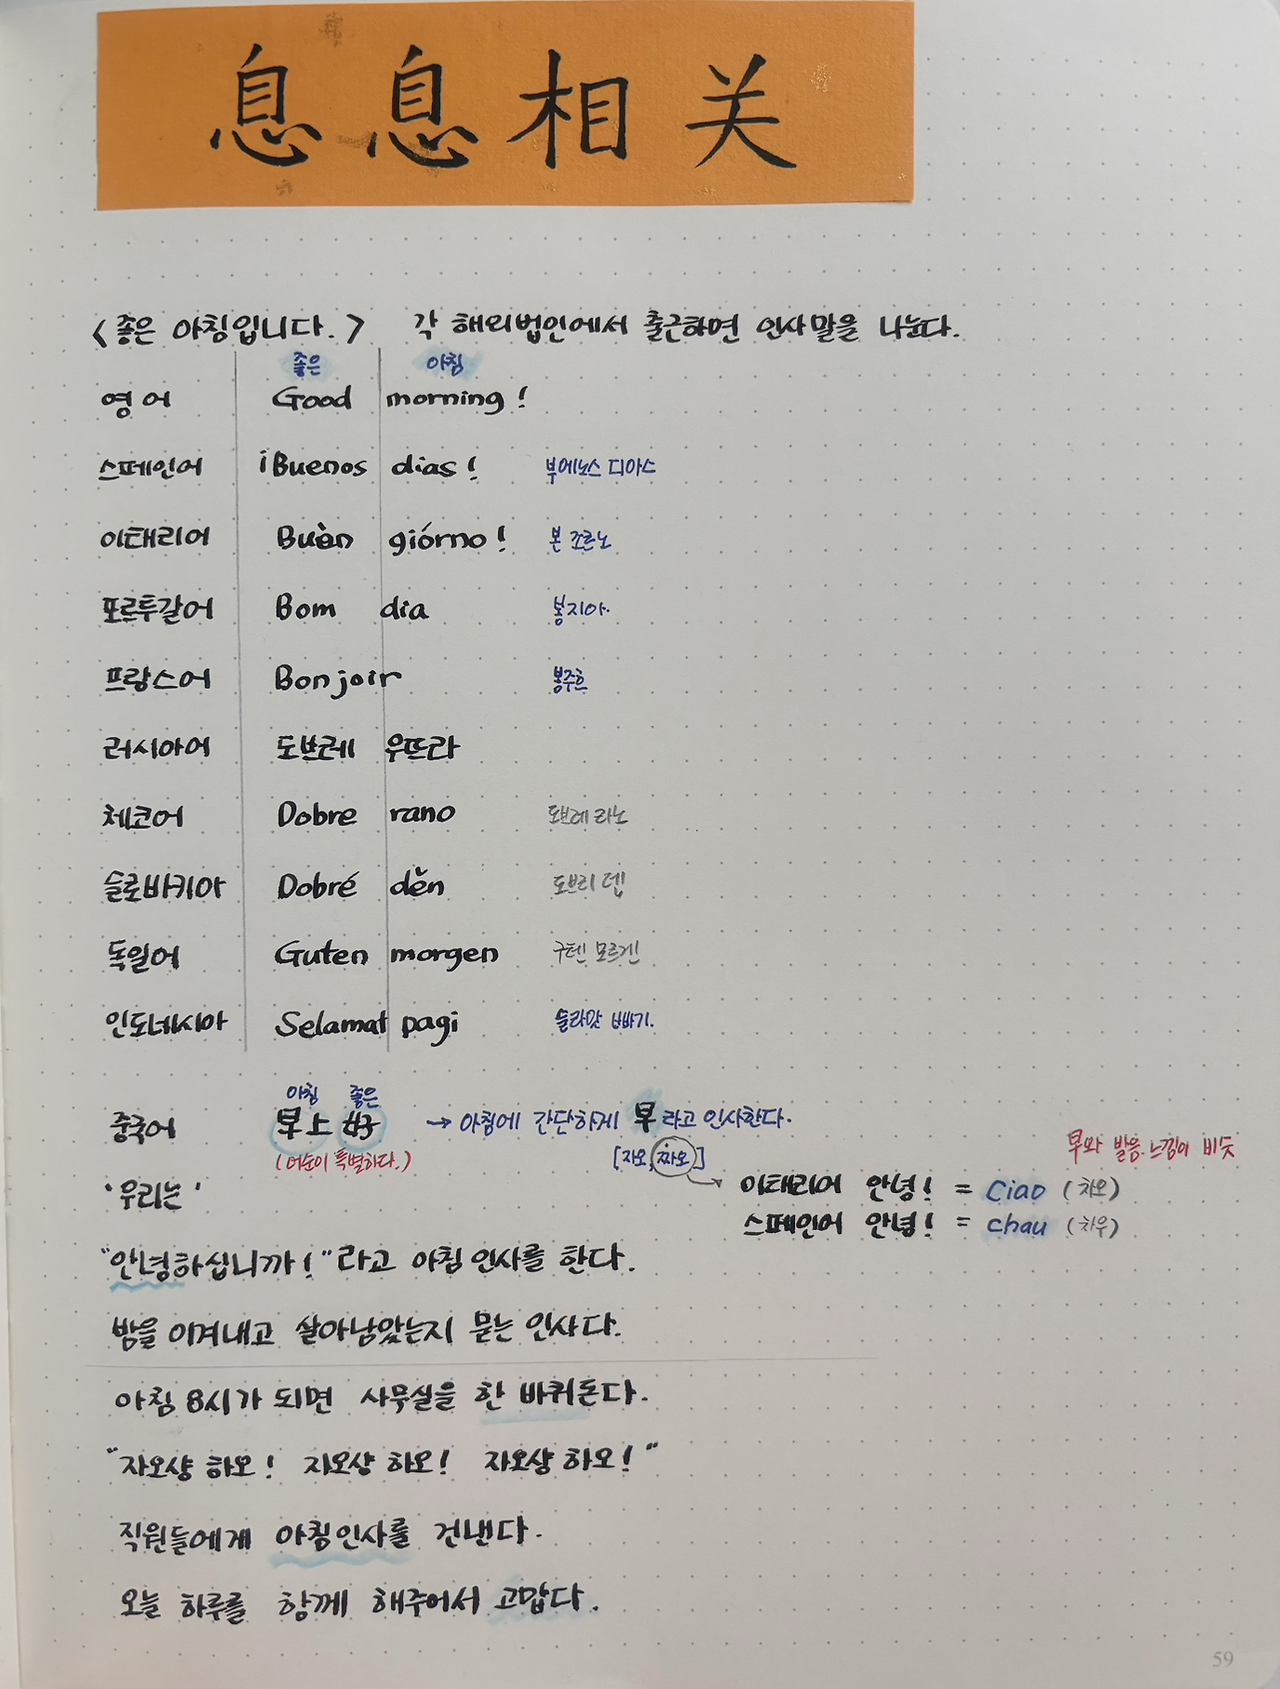 息息相关
<좋은 아침입니다.> 각 해외법인에서 출근하면 인사말을 나눈다.
좋은 아침
영어 Good morning!
스페인어 ¡Buenos dias! 부에노스 디아스
이태리어 Buèn giórno! 본 조르노
포르투갈어 Bom dia 봉지아.
프랑스어 Bonjoir 봉주흐
러시아어 도브레 우뜨라
체코어 Dobre rano 도브레 라노
슬로바키아 Dobré děn 도브리 덴
독일어 Guten morgen 구텐 모르겐
인도네시아 Selamat pagi 슬라맛 빠기.
아침 좋은
중국어 早上好 → 아침에 간단하게 早라고 인사한다.
(어순이 특별하다.) [자오, 짜오] 早와 발음. 느낌이 비슷
'우리는' 이태리어 안녕! = Ciao (차오)
스페인어 안녕! = chau (차우)
"안녕하십니까!"라고 아침 인사를 한다.
밤을 이겨내고 살아남았는지 묻는 인사다.
아침 8시가 되면 사무실을 한 바퀴돈다.
"자오샹 하오! 자오샹 하오! 자오샹 하오!"
직원들에게 아침인사를 건낸다.
오늘 하루를 함께 해주어서 고맙다.
59